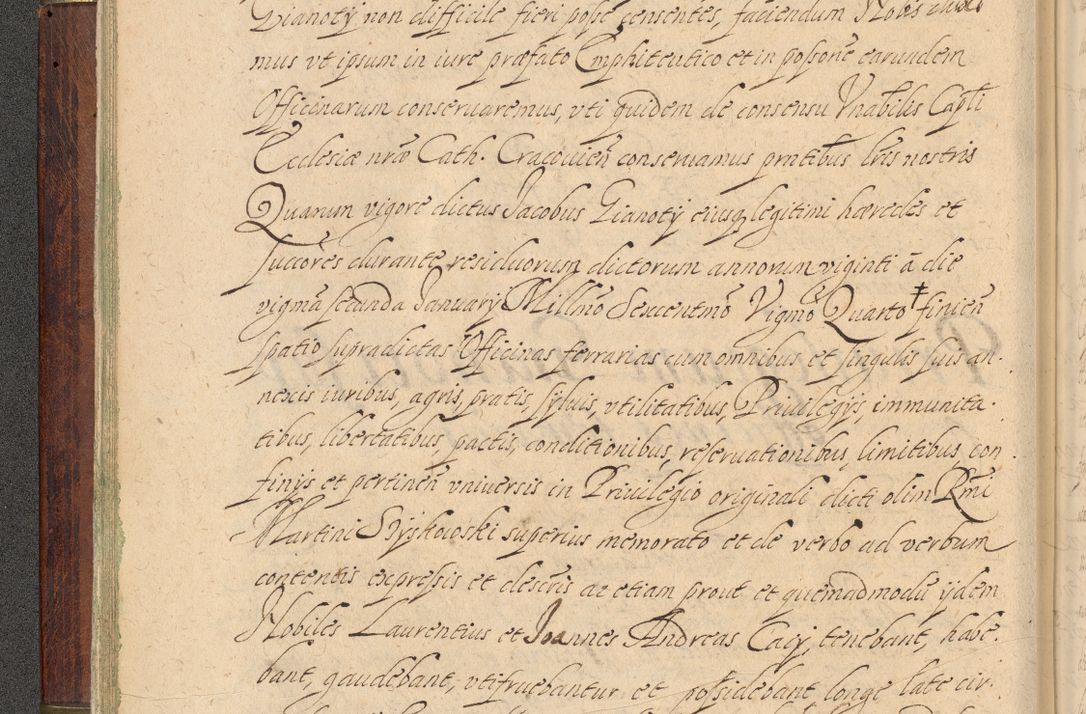 Gianoty non difficile fieri posse censentes, faciendum Nobis duxi
mus vt ipsum in iure præfato Emphiteutico et in possone earundem
Officinarum conseruaremus, vti quidem de consensu Vnabilis Capli
Ecclesiæ nræ Cath. Cracouien conseruamus pntibus lris nostris
Quarum vigore dictus Jacobus Gianoty eiusq legitimi hæredes et
succores durante residuorum dictorum annorum viginti à die
vigmâ secunda January Millmo Sexcentmo Vigmo Quarto ‡ finien
spatio supradictas Officinas ferrarias cum omnibus et singulis suis an-
nexis iuribus, agris, pratis, syluis, vtilitatibus, Priuilegys, immunita-
tibus, libertatibus, pactis, conditionibus, reseruationibus, limitibus, con
finys et pertinen vniuersis in Priuilegio originali dicti olim Rmi
Martini Szyskowski superius memorato et de verbo ad verbum
contentis expressis et descris ac etiam prout et quemadmodu ydem
Nobiles Laurentius et Joannes Andreas Cacy, tenebant, habe-
bant, gaudebant, vtifruebantur et possidebant longe late cir-